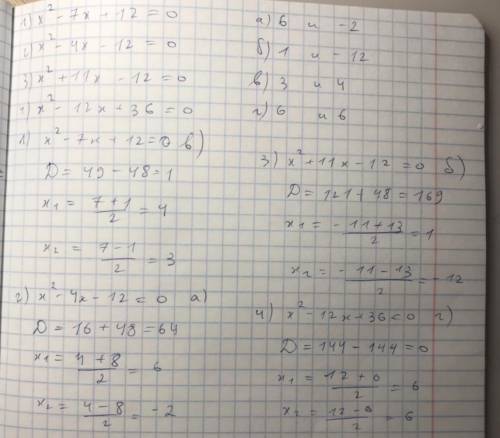 1) x² - 7x + 12 = 0
2) x² - 4x - 12 = 0
3) x² + 11x - 12 = 0
4) x² - 12x + 36 = 0
а) 6 и -2
б) 1 и -12
в) 3 и 4
г) 6 и 6
1) x² - 7x + 12 = 0 в)
D = 49 - 48 = 1
x₁ = (7 + 1)/2 = 4
x₂ = (7 - 1)/2 = 3
2) x² - 4x - 12 = 0 а)
D = 16 + 48 = 64
x₁ = (4 + 8)/2 = 6
x₂ = (4 - 8)/2 = -2
3) x² + 11x - 12 = 0 б)
D = 121 + 48 = 169
x₁ = (-11 + 13)/2 = 1
x₂ = (-11 - 13)/2 = -12
4) x² - 12x + 36 = 0 г)
D = 144 - 144 = 0
x₁ = (12 + 0)/2 = 6
x₂ = (12 - 0)/2 = 6